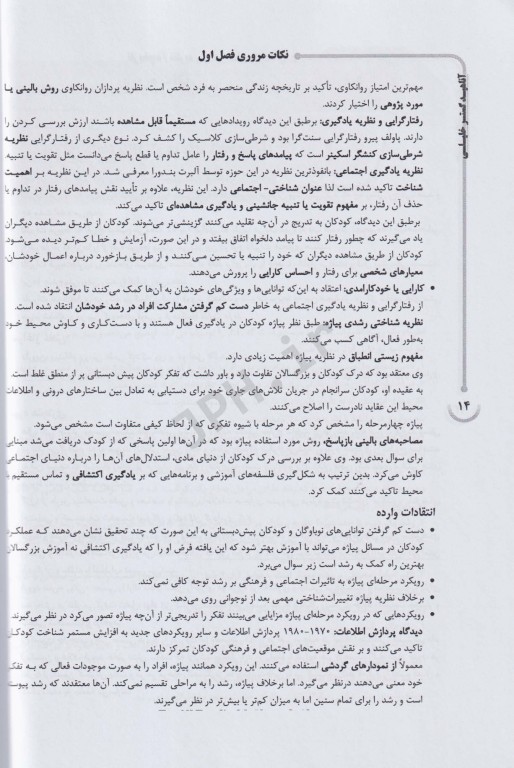 نکات مروری فصل اول
آناهید گستر خلیلی
۱۴
مهم‌ترین امتیاز روانکاوی، تأکید بر تاریخچه زندگی منحصر به فرد شخص است. نظریه پردازان روانکاوی روش بالینی یا
مورد پژوهی را اختیار کردند.
رفتارگرایی و نظریه یادگیری: برطبق این دیدگاه رویدادهایی که مستقیماً قابل مشاهده باشند ارزش بررسی کردن را
دارند. پاولف پیرو رفتارگرایی سنت‌گرا بود و شرطی‌سازی کلاسیک را کشف کرد. نوع دیگری از رفتارگرایی نظریه
شرطی‌سازی کنشگر اسکینر است که پیامدهای پاسخ و رفتار را عامل تداوم یا قطع پاسخ می‌دانست مثل تقویت یا تنبیه.
نظریه یادگیری اجتماعی: بانفوذترین نظریه در این حوزه توسط آلبرت بندورا معرفی شد. در این نظریه بر اهمیت
شناخت تاکید شده است لذا عنوان شناختی- اجتماعی دارد. این نظریه، علاوه بر تأیید نقش پیامدهای رفتار در تداوم یا
حذف آن رفتار، بر مفهوم تقویت یا تنبیه جانشینی و یادگیری مشاهده‌ای تاکید می‌کند.
برطبق این دیدگاه، کودکان به تدریج در آن‌چه تقلید می‌کنند گزینشی‌تر می‌شوند. کودکان از طریق مشاهده دیگران
یاد می‌گیرند که چطور رفتار کنند تا پیامد دلخواه اتفاق بیفتد و در این صورت، آزمایش و خطا کم‌تر دیده می‌شود.
کودکان از طریق مشاهده دیگران که خود را تنبیه یا تحسین می‌کنند و از طریق بازخورد درباره اعمال خودشان،
معیارهای شخصی برای رفتار و احساس کارایی را پرورش می‌دهند.
کارایی یا خودکارامدی: اعتقاد به این‌که توانایی‌ها و ویژگی‌های خودشان به آن‌ها کمک می‌کنند تا موفق شوند.
از رفتارگرایی و نظریه یادگیری اجتماعی به خاطر دست کم گرفتن مشارکت افراد در رشد خودشان انتقاد شده است.
نظریه شناختی رشدی پیاژه: طبق نظر پیاژه کودکان در یادگیری فعال هستند و با دست‌کاری و کاوش محیط خود
به‌طور فعال، آگاهی کسب می‌کنند.
مفهوم زیستی انطباق در نظریه پیاژه اهمیت زیادی دارد.
وی معتقد بود که درک کودکان و بزرگسالان تفاوت دارد و باور داشت که تفکر کودکان پیش دبستانی پر از منطق غلط است.
به عقیده او، کودکان سرانجام در جریان تلاش‌های جاری خود برای دستیابی به تعادل بین ساختارهای درونی و اطلاعات
محیط این عقاید نادرست را اصلاح می‌کنند.
پیاژه چهارمرحله را مشخص کرد که هر مرحله با شیوه تفکری که از لحاظ کیفی متفاوت است مشخص می‌شود.
مصاحبه‌های بالینی بازپاسخ، روش مورد استفاده پیاژه بود که در آن‌ها اولین پاسخی که از کودک دریافت می‌شد مبنایی
برای سوال بعدی بود. وی علاوه بر بررسی درک کودکان از دنیای مادی، استدلال‌های آن‌ها را درباره دنیای اجتماعی
کاوش می‌کرد. بدین ترتیب به شکل‌گیری فلسفه‌های آموزشی و برنامه‌هایی که بر یادگیری اکتشافی و تماس مستقیم با
محیط تاکید می‌کنند کمک کرد.
انتقادات وارده
دست کم گرفتن توانایی‌های نوباوگان و کودکان پیش‌دبستانی به این صورت که چند تحقیق نشان می‌دهند که عملکرد
کودکان در مسائل پیاژه می‌تواند با آموزش بهتر شود که این یافته فرض او را که یادگیری اکتشافی نه آموزش بزرگسالان
بهترین راه کمک به رشد است زیر سوال می‌برد.
رویکرد مرحله‌ای پیاژه به تاثیرات اجتماعی و فرهنگی بر رشد توجه کافی نمی‌کند.
برخلاف نظریه پیاژه تغییرات‌شناختی مهمی بعد از نوجوانی روی می‌دهد.
رویکردهایی که در رویکرد مرحله‌ای پیاژه مزایایی می‌بینند تفکر را تدریجی‌تر از آن‌چه پیاژه تصور می‌کرد در نظر می‌گیرند.
دیدگاه پردازش اطلاعات: ۱۹۷۰-۱۹۸۰ پردازش اطلاعات و سایر رویکردهای جدید به افزایش مستمر شناخت کودکان
تاکید می‌کنند و بر نقش موقعیت‌های اجتماعی و فرهنگی کودکان تمرکز دارند.
معمولاً از نمودارهای گردشی استفاده می‌کنند. این رویکرد همانند پیاژه، افراد را به صورت موجودات فعالی که به تفکر
خود معنی می‌دهند درنظر می‌گیرد. اما برخلاف پیاژه، رشد را به مراحلی تقسیم نمی‌کند. آن‌ها معتقدند که رشد پیوسته
است و رشد را برای تمام سنین اما به میزان کم‌تر یا بیش‌تر در نظر می‌گیرند.